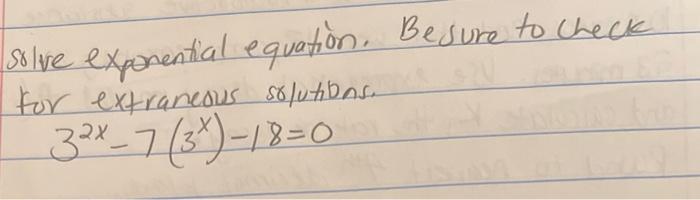 solve exponential equation. Be sure to check
for extraneous solutions.
3^{2x} - 7 (3^x) - 18 = 0